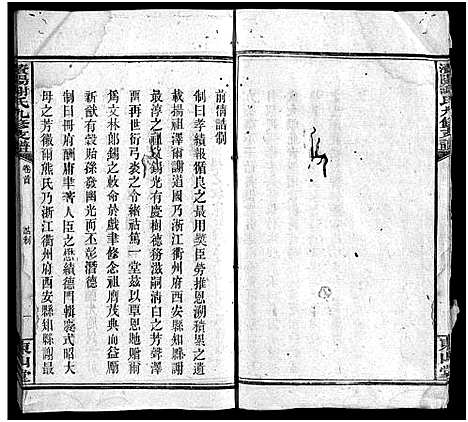 前清誥制
制曰孝績報循良之最用獎臣勞推恩溯積累之
載揚祖澤爾謝道國乃浙江衢州府西安縣知縣謝
最淳之祖父錫光有慶樹德務滋嗣清白之芳聲澤
再世衍弓裘之令緒祜篤一堂茲以覃恩
爲文林郎錫之敕命於戲聿修念祖膺茂典而益勵
新猷有穀貽孫發幽光而丕彰潛德
制曰冊府酬庸聿著人臣之懋績德門輯慶式昭大
母之芳徽爾熊氏乃浙江衢州府西安縣知縣謝最
謝氏九修支譜
卷首
誥制
一
東山堂
東山堂